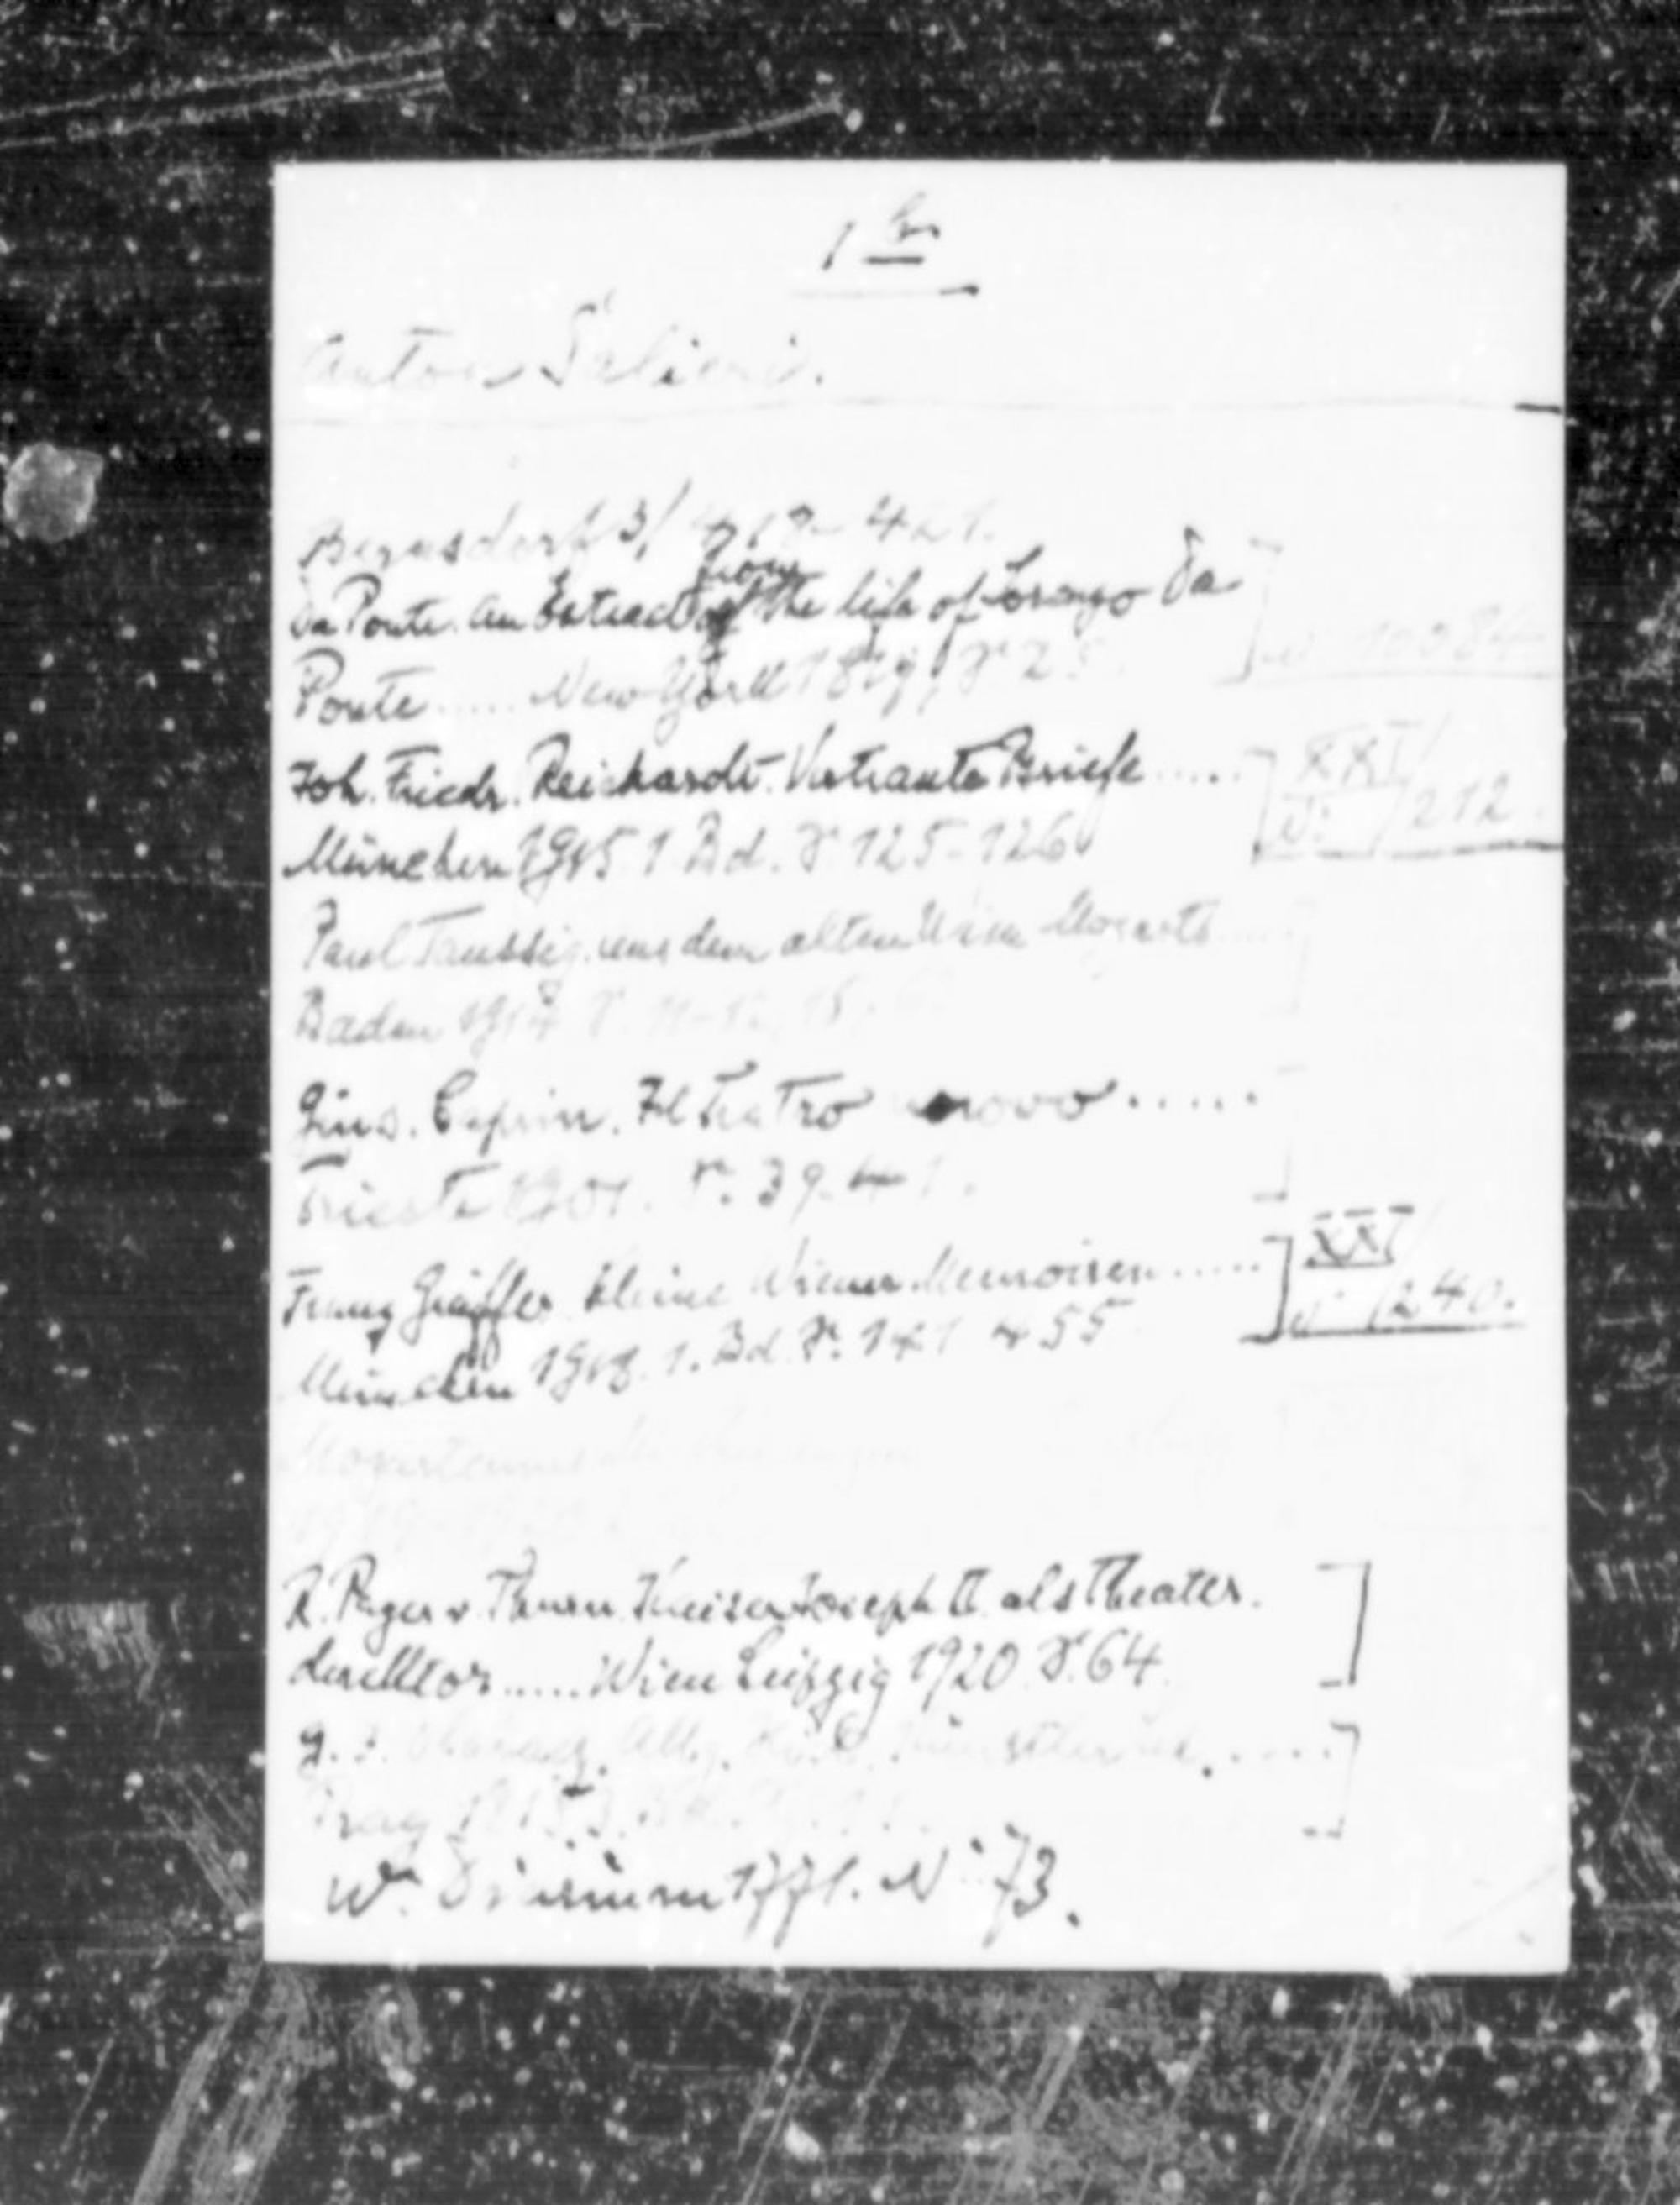 1
Anton Salieri.
Bernsdorf 3/ 418-421.
from
Da Ponte. An Extract of the life of Lorenzo Da
Ponte ..... New York 1819, S 25.
10084
Joh. Friedr. Reichardt. Vertraute Briefe .....
XXI/
München 1915. 1. Bd. S. 125-126
N: 1212.
Paul Taussig. aus dem alten Wien Mozarts .....
Baden 1914 S. 11-12,
Gius. Caprin. Il Teatro nuovo .....
Trieste 1901. S. 39-41.
Franz Gräffer kleine Wiener Memoiren .....
XXI/
1240.
München 1918. 1. Bd. S. 141 455
Mozarteums
R. Payer v. Thurn. Kaiser Joseph II. als Theater.
direktor ..... Wien Leipzig 1920 S. 64.
G. J. Dlabacz. Allg. Hist. Künstlerlex. .....
Prag 1815 3. Bd.
W. Diarium 1771. N: 73.